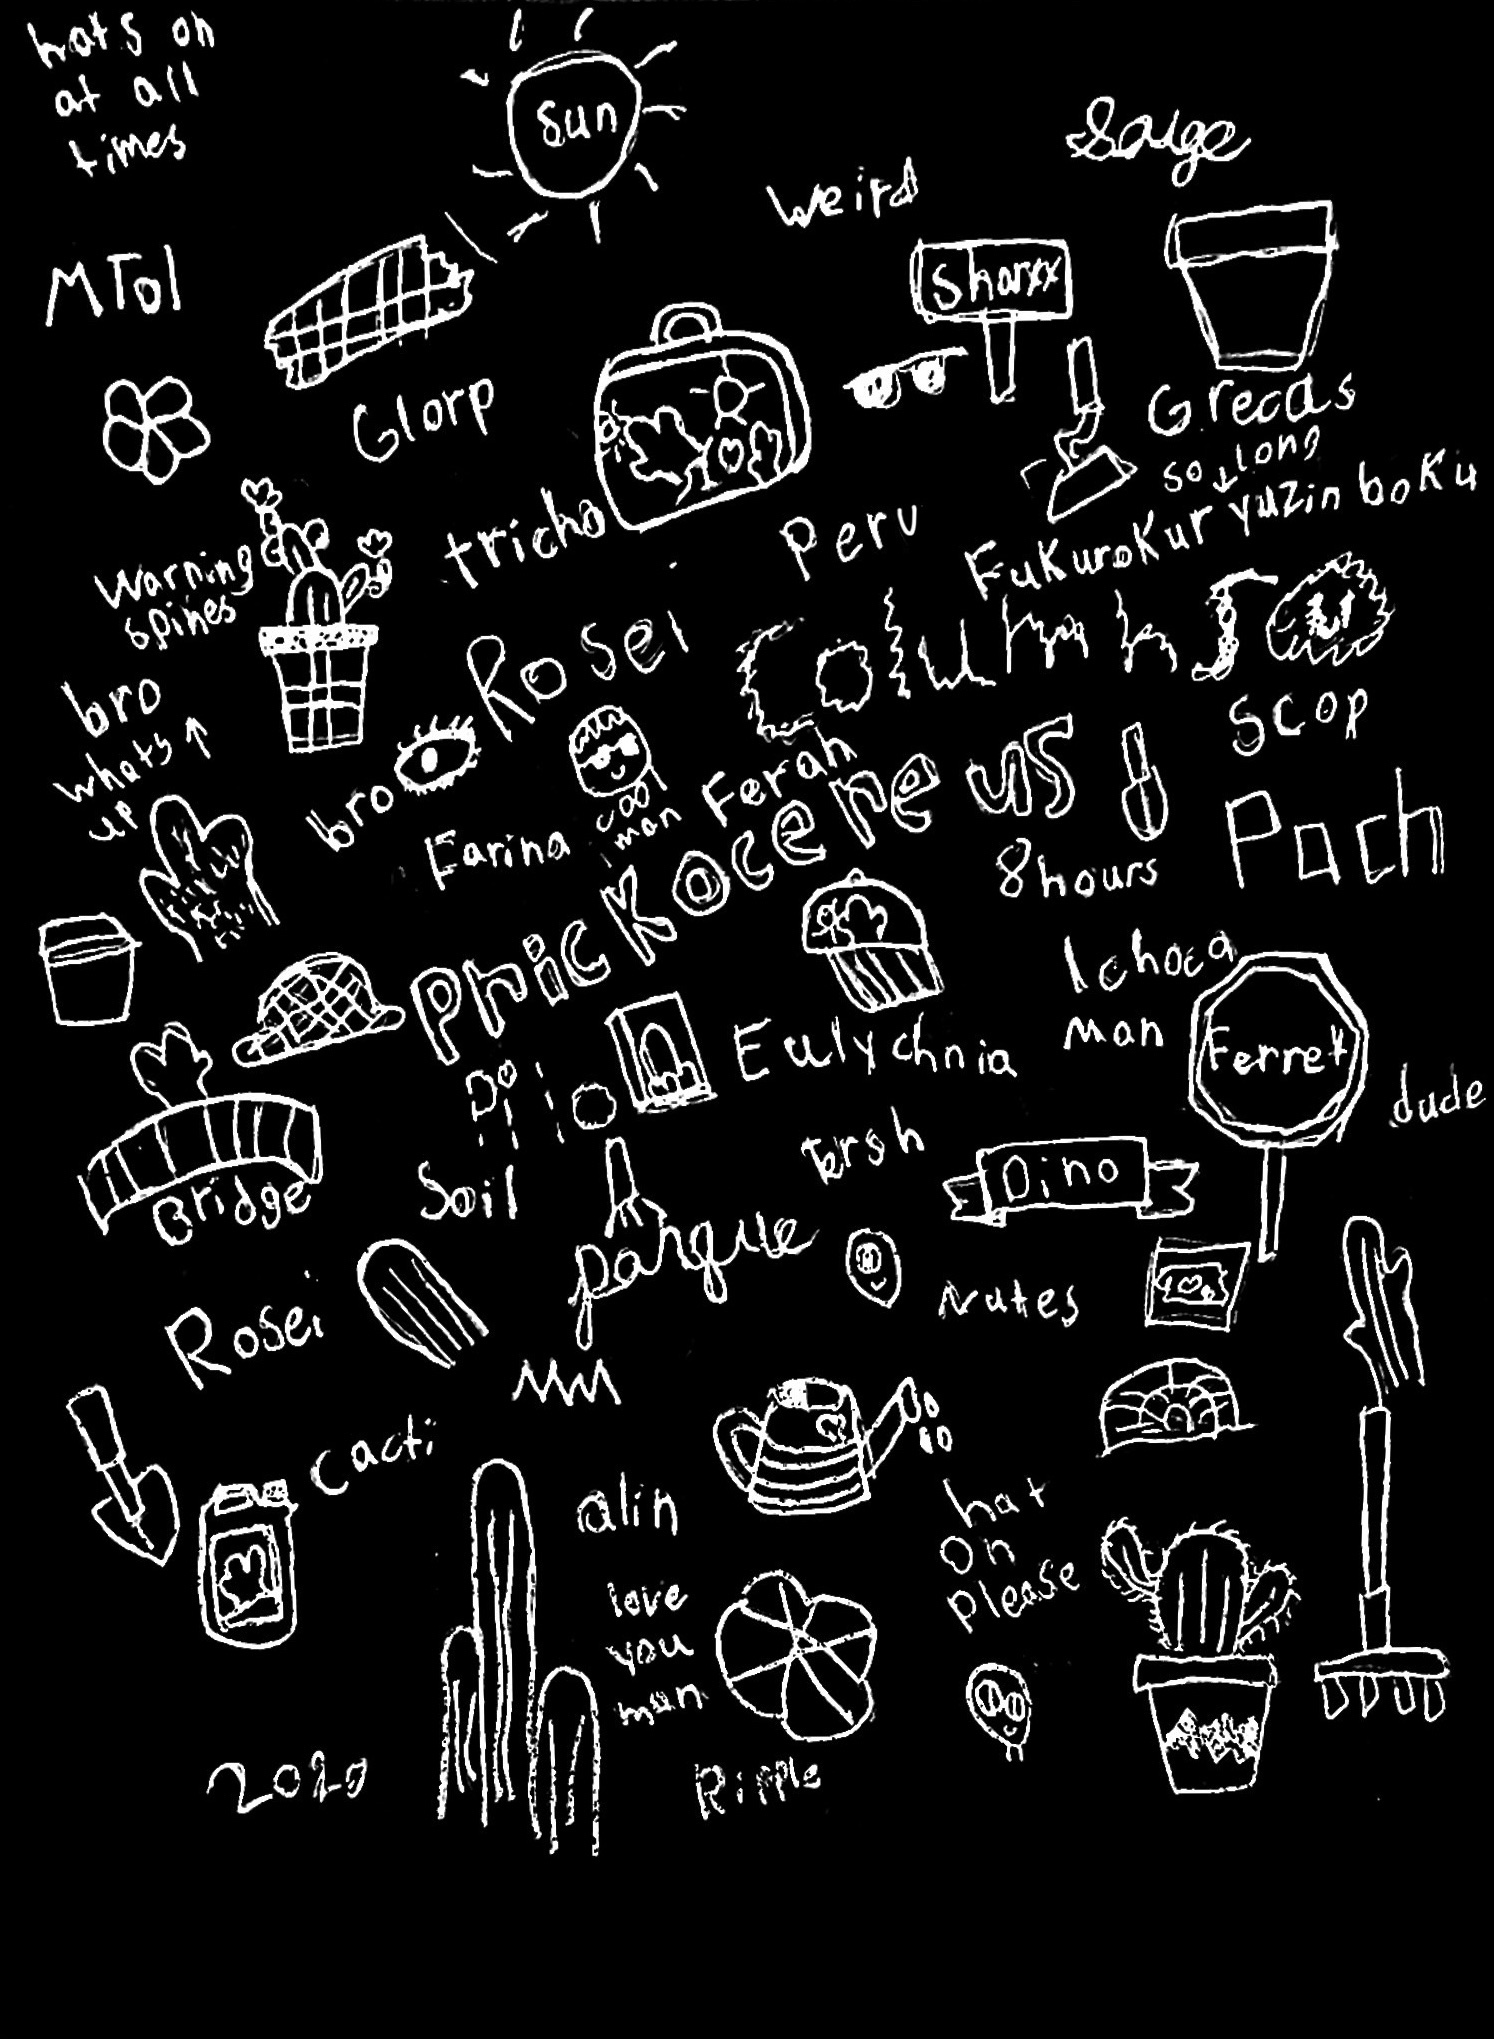 hats on
at all
times
Sun
Saige
weird
MTol
Sharxx
Glorp
Grecas
so long
tricho
Peru
Fukurokuryuzinboku
Warning
spines
Rosei
Columns
scop
bro
whats
up
bro
Farina
cool
man
Ferah
us
8hours
Pach
Phickocereus
Ichoca
man
Ferret
Eulychnia
dude
Pilo
Bridge
Soil
Dino
Nutes
Rosei
cacti
alin
hat
on
please
love
you
man
2020
Ripple